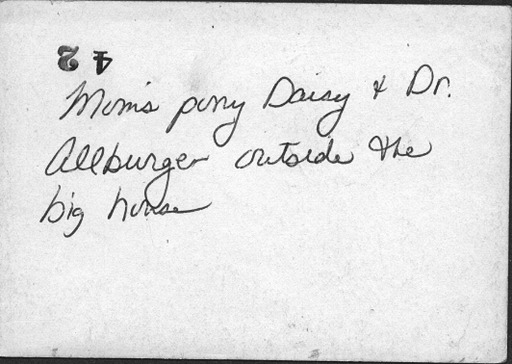 42
Mom's pony Daisy & Dr.
Allburger outside the
big house